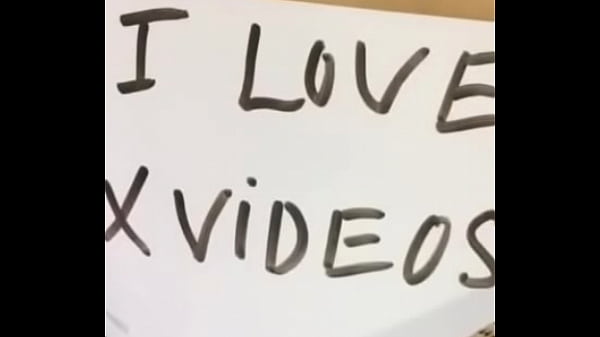 I LOVE
XViDEOS